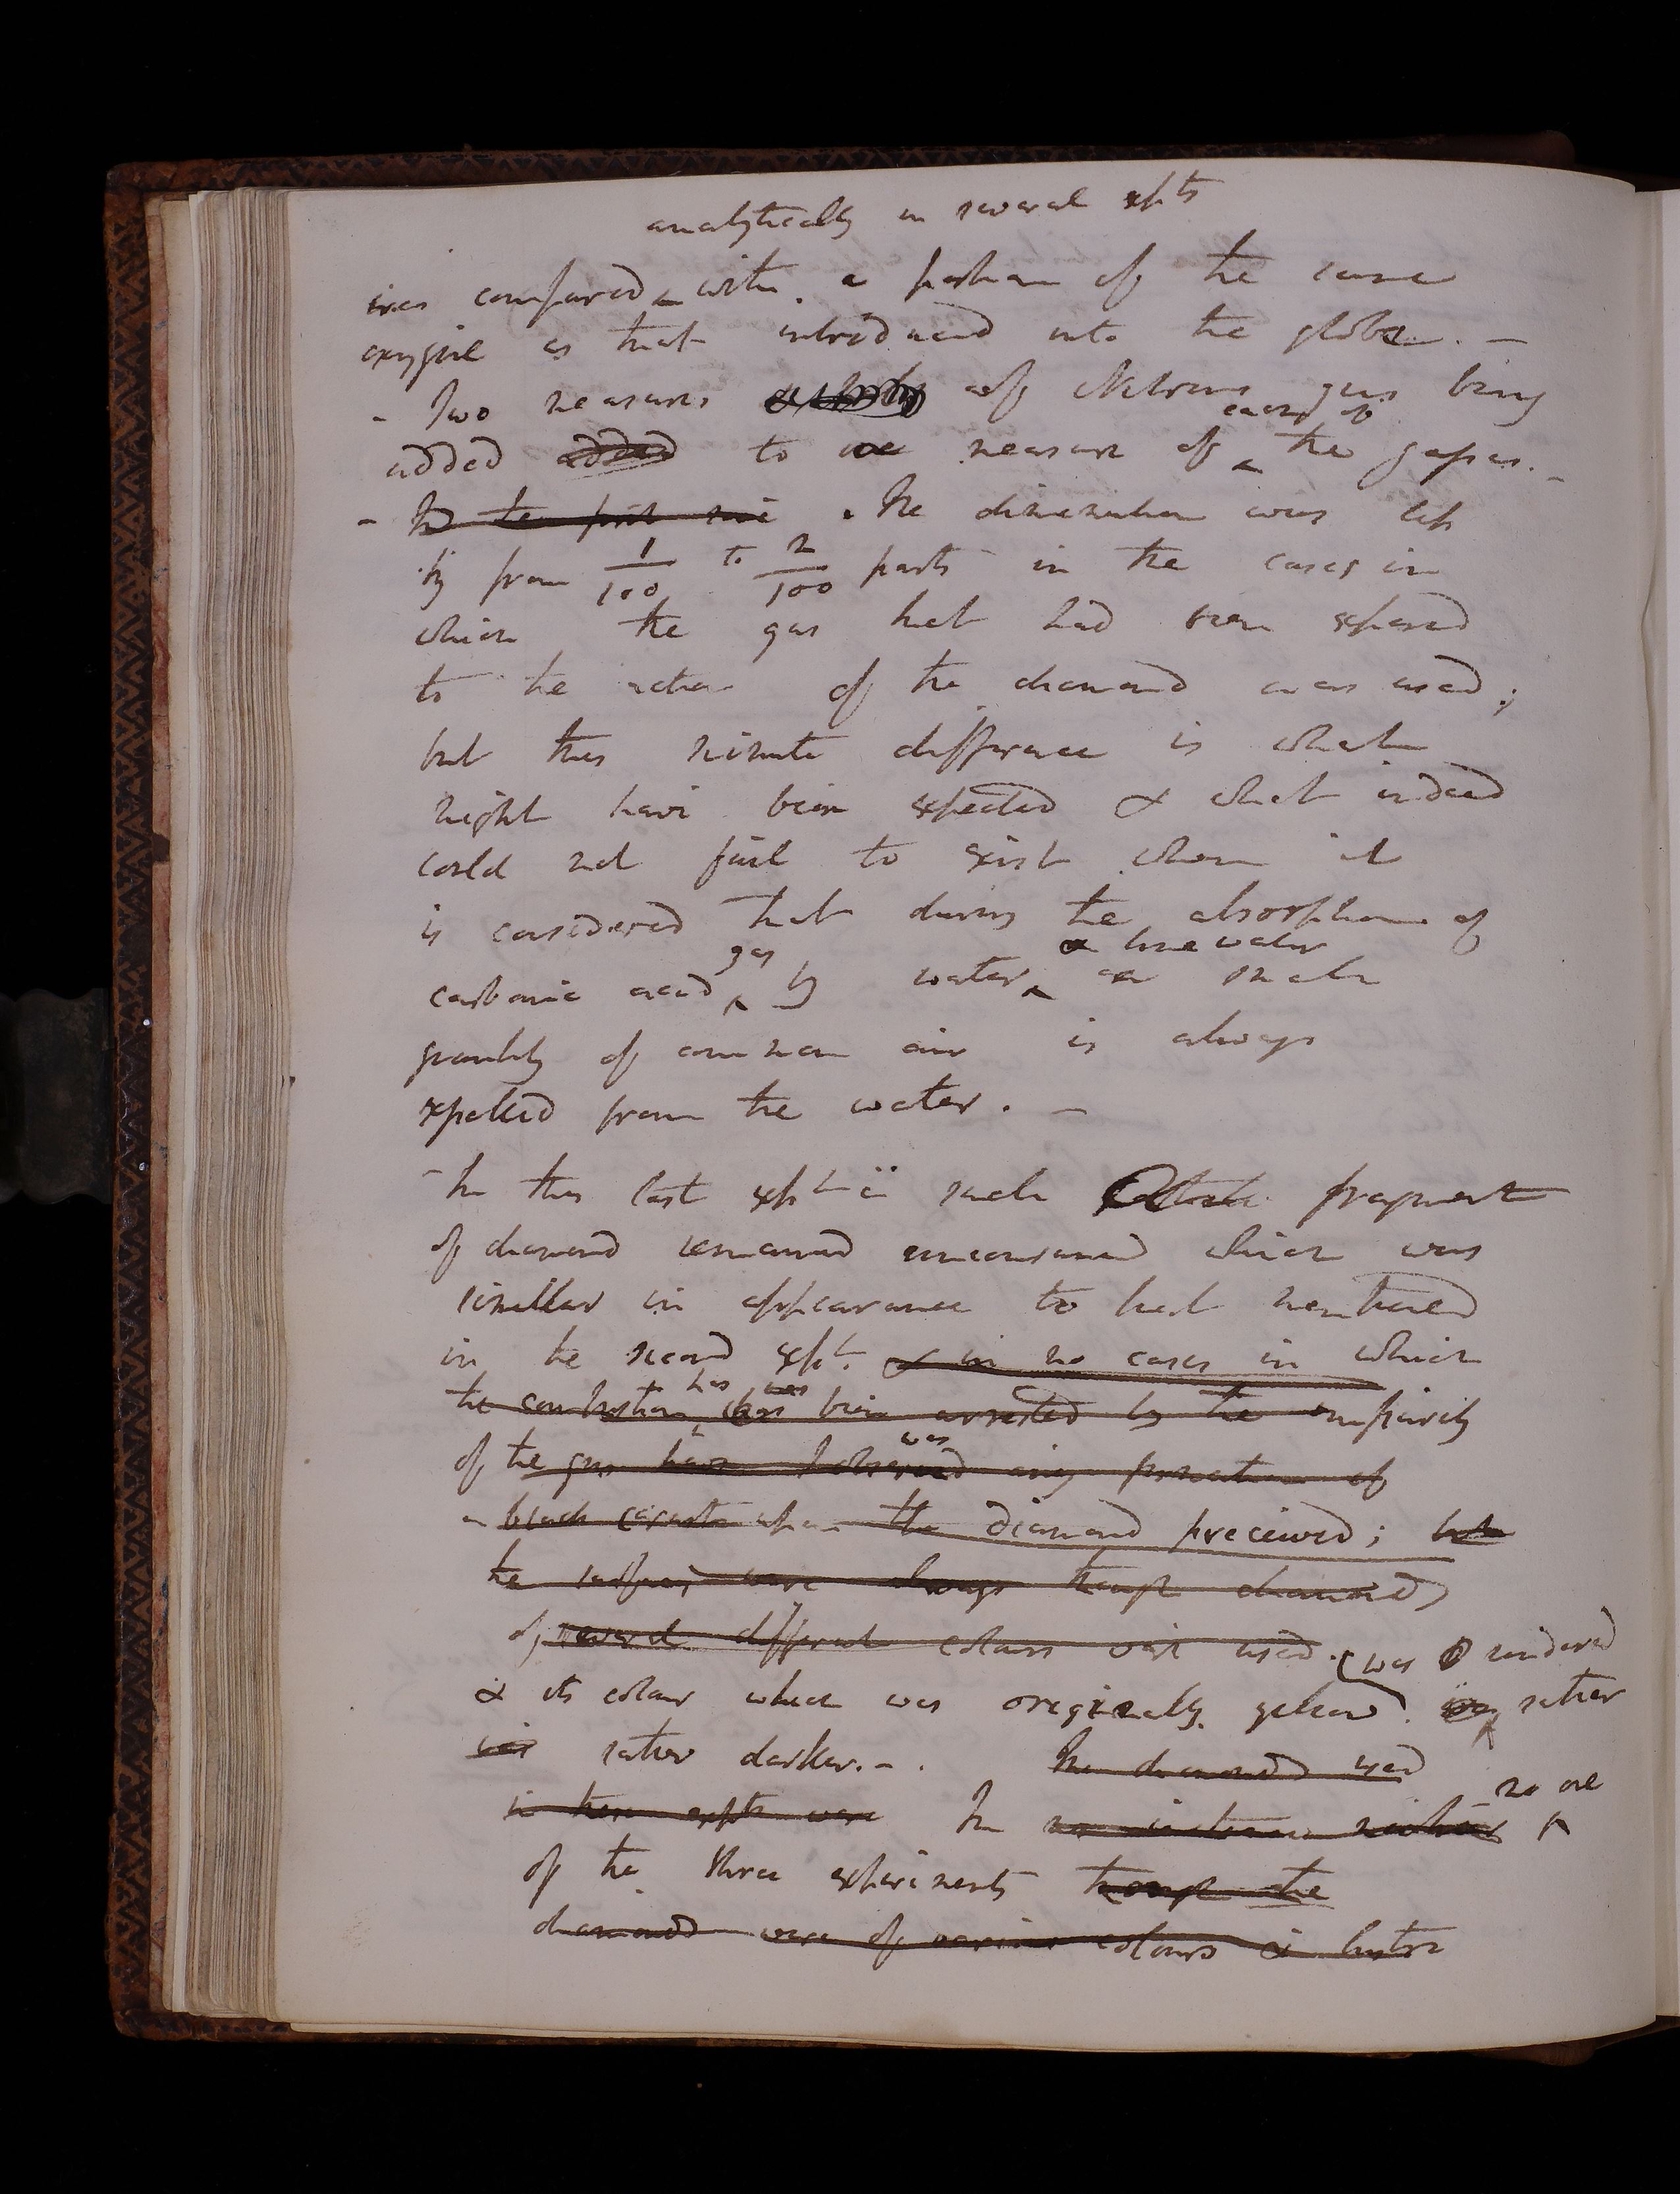 analytically in several expts
was compared with a portion of the same
oxygene as that introduced into the globe. –
– Two measures of Nitrous gas being
each of
added added to one measure of the gasses. –
– In the first case . The diminution was less
by from 1/100 to 2/100 parts in the cases in
which the gas that had been exposed
to the action of the diamond was used;
but this minute difference is what
might have been expected & what indeed
could not fail to exist when it
is considered that during the absorption of
gas or lime water
carbonic acid by water a small
quantity of common air is always
expelled from the water. –
– In this last expt a small fragment
of diamond remained unconsumed which was
similar in appearance to that mentioned
in the second expt. & in no cases in which
has was
the combustion has been arrested by the impurity
was
of the gas have I observed any formation of
a black crust upon the diamond preceived; but
the surfaces were always though diamonds
of several different colours were used.
(was rendered
& its colour which was originally yellow. was rather
was rather darker. – . The diamonds used
no one
in these expts were In no instance
of the three experiments though the
diamonds were of various colours & lustre